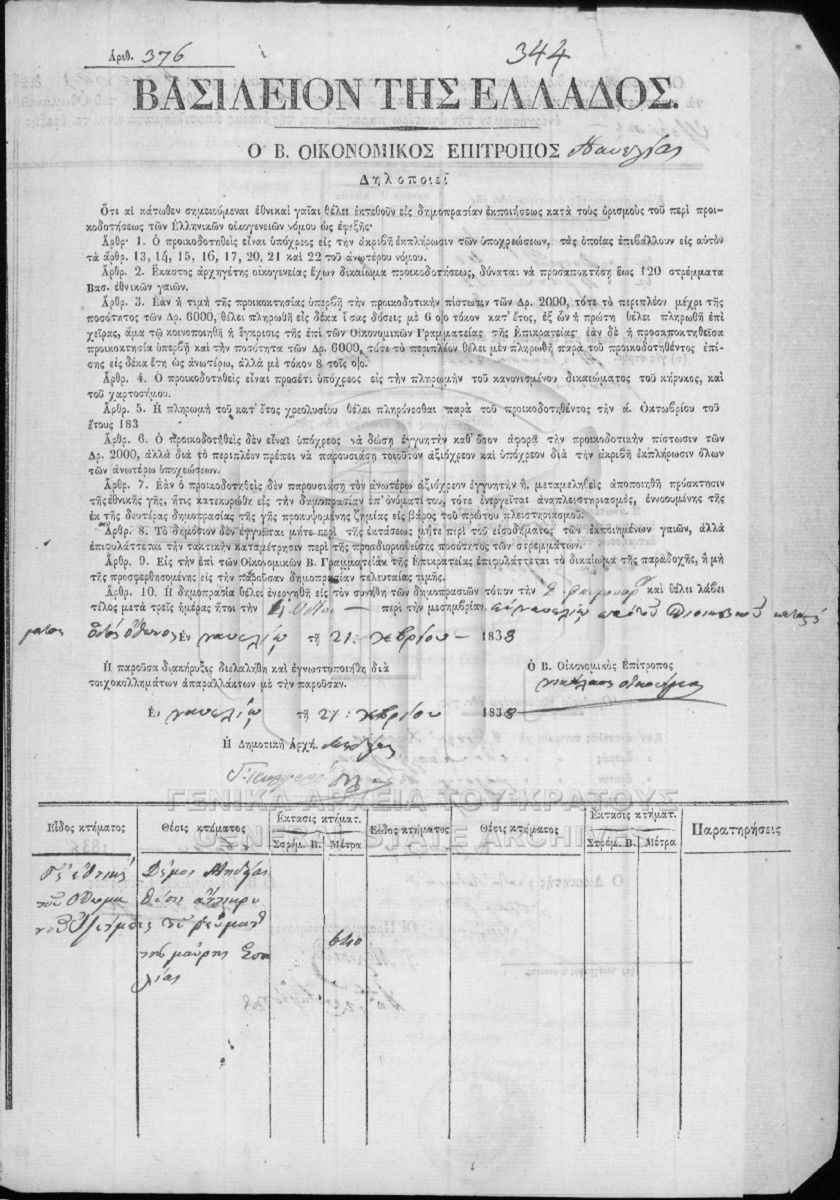 Ἀριθ. 376
344
ΒΑΣΙΛΕΙΟΝ ΤΗΣ ΕΛΛΑΔΟΣ.
Ο Β. ΟΙΚΟΝΟΜΙΚΟΣ ΕΠΙΤΡΟΠΟΣ Ναυπλίας
Δηλοποιεῖ
Ὅτι αἱ κάτωθεν σημειούμεναι ἐθνικαὶ γαῖαι θέλει ἐκτεθοῦν εἰς δημοπρασίαν ἐκποιήσεως κατὰ τοὺς ὁρισμοὺς τοῦ περὶ προι-
κοδοτήσεως τῶν Ἑλληνικῶν οἰκογενειῶν νόμου ὡς ἐφεξῆς·
Ἄρθρ· 1. Ὁ προικοδοτηθεὶς εἶναι ὑπόχρεος εἰς τὴν ἀκριβῆ ἐκπλήρωσιν τῶν ὑποχρεώσεων, τὰς ὁποίας ἐπιβάλλουν εἰς αὐτὸν
τὰ ἄρθρ. 13, 14, 15, 16, 17, 20, 21 καὶ 22 τοῦ ἀνωτέρου νόμου.
Ἄρθρ. 2. Ἕκαστος ἀρχηγέτης οἰκογενείας ἔχων δικαίωμα προικοδοτήσεως, δύναται νὰ προσαποκτήσῃ ἕως 120 στρέμματα
Βασ. ἐθνικῶν γαιῶν.
Ἄρθρ. 3. Ἐὰν ἡ τιμὴ τῆς προικοκτησίας ὑπερβῇ τὴν προικοδοτικὴν πίστωσιν τῶν Δρ. 2000, τότε τὸ περιπλέον μέχρι τῆς
ποσότητος τῶν Δρ. 6000, θέλει πληρωθῆ εἰς δέκα ἴσας δόσεις μὲ 6 ο)ο τόκον κατ' ἔτος, ἐξ ὧν ἡ πρώτη θέλει πληρωθῆ ἐπὶ
χεῖρας, ἅμα τῷ κοινοποιηθῇ ἡ ἔγκρισις τῆς ἐπὶ τῶν Οἰκονομικῶν Γραμματείας τῆς Ἐπικρατείας· ἐὰν δὲ ἡ προσαποκτηθεῖσα
προικοκτησία ὑπερβῇ καὶ τὴν ποσότητα τῶν Δρ. 6000, τότε τὸ περιπλέον θέλει μὲν πληρωθῆ παρὰ τοῦ προικοδοτηθέντος ἐπί-
σης εἰς δέκα ἔτη ὡς ἀνωτέρω, ἀλλὰ μὲ τόκον 8 τοῖς ο)ο.
Ἄρθρ. 4. Ὁ προικοδοτηθεὶς εἶναι προσέτι ὑπόχρεος εἰς τὴν πληρωμὴν τοῦ κανονισμένου δικαιώματος τοῦ κήρυκος, καὶ
τοῦ χαρτοσήμου.
Ἄρθρ. 5. Ἡ πληρωμὴ τοῦ κατ' ἔτος χρεολυσίου θέλει πληρόνεσθαι παρὰ τοῦ προικοδοτηθέντος τὴν ά. Ὀκτωβρίου τοῦ
ἔτους 183
Ἄρθρ. 6. Ὁ προικοδοτηθεὶς δὲν εἶναι ὑπόχρεος νὰ δώσῃ ἐγγυητὴν καθ' ὅσον ἀφορᾷ τὴν προικοδοτικὴν πίστωσιν τῶν
Δρ. 2000, ἀλλὰ διὰ τὸ περιπλέον πρέπει νὰ παρουσιάσῃ τοιοῦτον ἀξιόχρεον καὶ ὑπόχρεον διὰ τὴν ἀκριβῆ ἐκπλήρωσιν ὅλων
τῶν ἀνωτέρω ὑποχεώσεων.
Ἄρθρ. 7. Ἐὰν ὁ προικοδοτηθεὶς δὲν παρουσιάσῃ τὸν ἀνωτέρω ἀξιόχρεον ἐγγυητὴν ἢ, μεταμεληθεὶς ἀποποιηθῆ πρόσκτησιν
τῆς ἐθνικῆς γῆς, ἥτις κατεκυρώθη εἰς τὴν δημοπρασίαν ἐπ' ὀνόματί του, τότε ἐνεργεῖται ἀναπλειστηριασμὸς, ἐννοουμένης τῆς
ἐκ τῆς δευτέρας δημοπρασίας τῆς γῆς προκυψομένης ζημίας εἰς βάρος τοῦ πρώτου πλειστηριασμοῦ.
Ἄρθρ. 8. Τὸ δημόσιον δὲν ἐγγυᾶται μήτε περὶ τῆς ἐκτάσεως μήτε περὶ τοῦ εἰσοδήματος τῶν ἐκποιημένων γαιῶν, ἀλλὰ
ἐπιφυλάττεται τὴν τακτικὴν καταμέτρησιν περὶ τῆς προσδιορισθείσης ποσότητος τῶν στρεμμάτων.
Ἄρθρ. 9. Εἰς τὴν ἐπὶ τῶν Οἰκονομικῶν Β. Γραμματείαν τῆς Ἐπικρατείας ἐπιφυλάττεται τὸ δικαίωμα τῆς παραδοχῆς, ἢ μὴ
τῆς προσφερθησομένης εἰς τὴν παροῦσαν δημοπρασίαν τελευταίας τιμῆς.
Ἄρθρ. 10. Ἡ δημοπρασία θέλει ἐνεργηθῇ εἰς τὸν συνήθη τῶν δημοπρασιῶν τόπον τὴν καὶ θέλει λάβει
τέλος μετὰ τρεῖς ἡμέρας ἤτοι τὴν 4 περὶ τὴν μεσημβρίαν.
Ἐν Ναυπλίῳ τῇ 21: 1838
Ἡ παροῦσα διακήρυξις διελαλήθη καὶ ἐγνωστοποιήθη διὰ
τοιχοκολλημάτων ἀπαραλλάκτων μὲ τὴν παροῦσαν.
Ὁ Β. Οἰκονομικὸς Ἐπίτροπος
Ἐν Ναυπλίῳ τῇ 21: 1838
Ἡ Δημοτικὴ Ἀρχὴ.
ΓΕΝΙΚΑ ΑΡΧΕΙΑ ΤΟΥ ΚΡΑΤΟΥΣ
GENERAL STATE ARCHIVES
Εἶδος κτήματος Θέσις κτήματος Ἔκτασις κτήματ. Εἶδος κτήματος Θέσις κτήματος Ἔκτασις κτήματ. Παρατηρήσεις
Στρέμ. Β. Μέτρα Στρέμ. Β. Μέτρα
Δῆμος
θέσις ἄντικρυ
τοῦ ῥεύματ
640
τῆς μαύρης